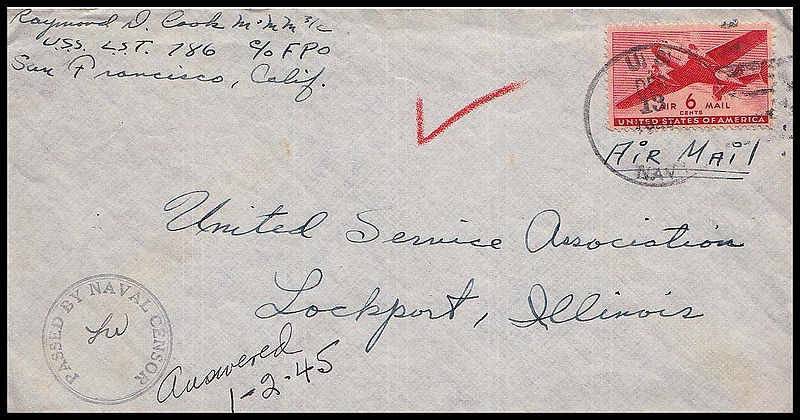 Raymond D. Cook M.M.M 3/c
U.S.S. L.S.T. 786 c/o F P O
San Francisco, Calif.
AIR 6 MAIL
CENTS
UNITED STATES OF AMERICA
13
NAV
AIR MAIL
United Service Association
Lockport, Illinois
PASSED BY NAVAL CENSOR
Answered
1-2-45